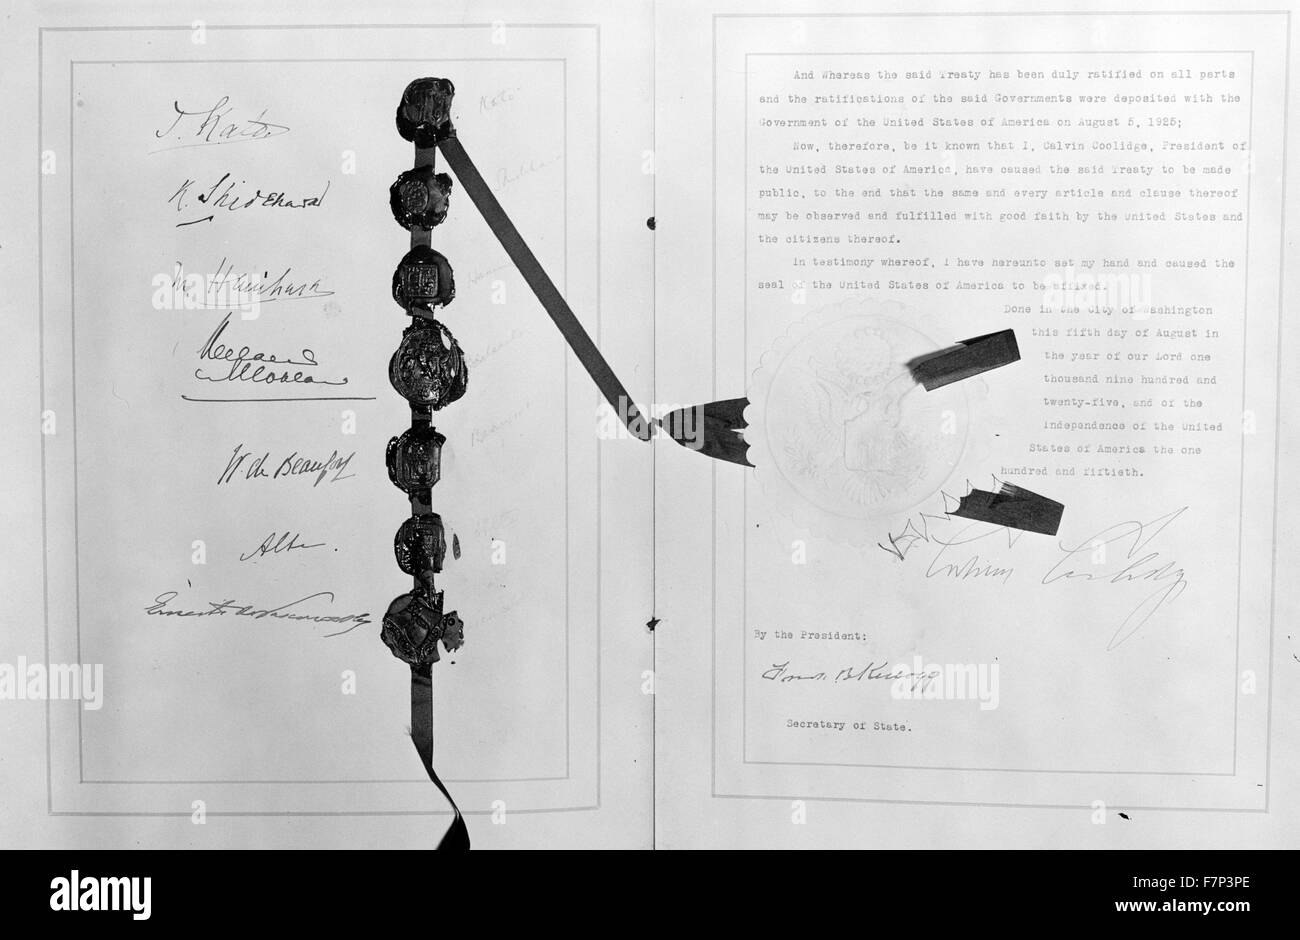 T. Kato
K. Shidehara
M. Hanihara
W. de Beaufort
Kato
Beaufort
And Whereas the said Treaty has been duly ratified on all parts
and the ratifications of the said Governments were deposited with the
Government of the United States of America on August 5, 1925;
Now, therefore, be it known that I, Calvin Coolidge, President of
the United States of America, have caused the said Treaty to be made
public, to the end that the same and every article and clause thereof
may be observed and fulfilled with good faith by the United States and
the citizens thereof.
In testimony whereof, I have hereunto set my hand and caused the
seal of the United States of America to be affixed.
Done in the City of Washington
this fifth day of August in
the year of our Lord one
thousand nine hundred and
twenty-five, and of the
independence of the United
States of America the one
hundred and fiftieth.
Calvin Coolidge
By the President:
Frank B Kellogg
Secretary of State.
alamy
Image ID: F7P3PE
www.alamy.com